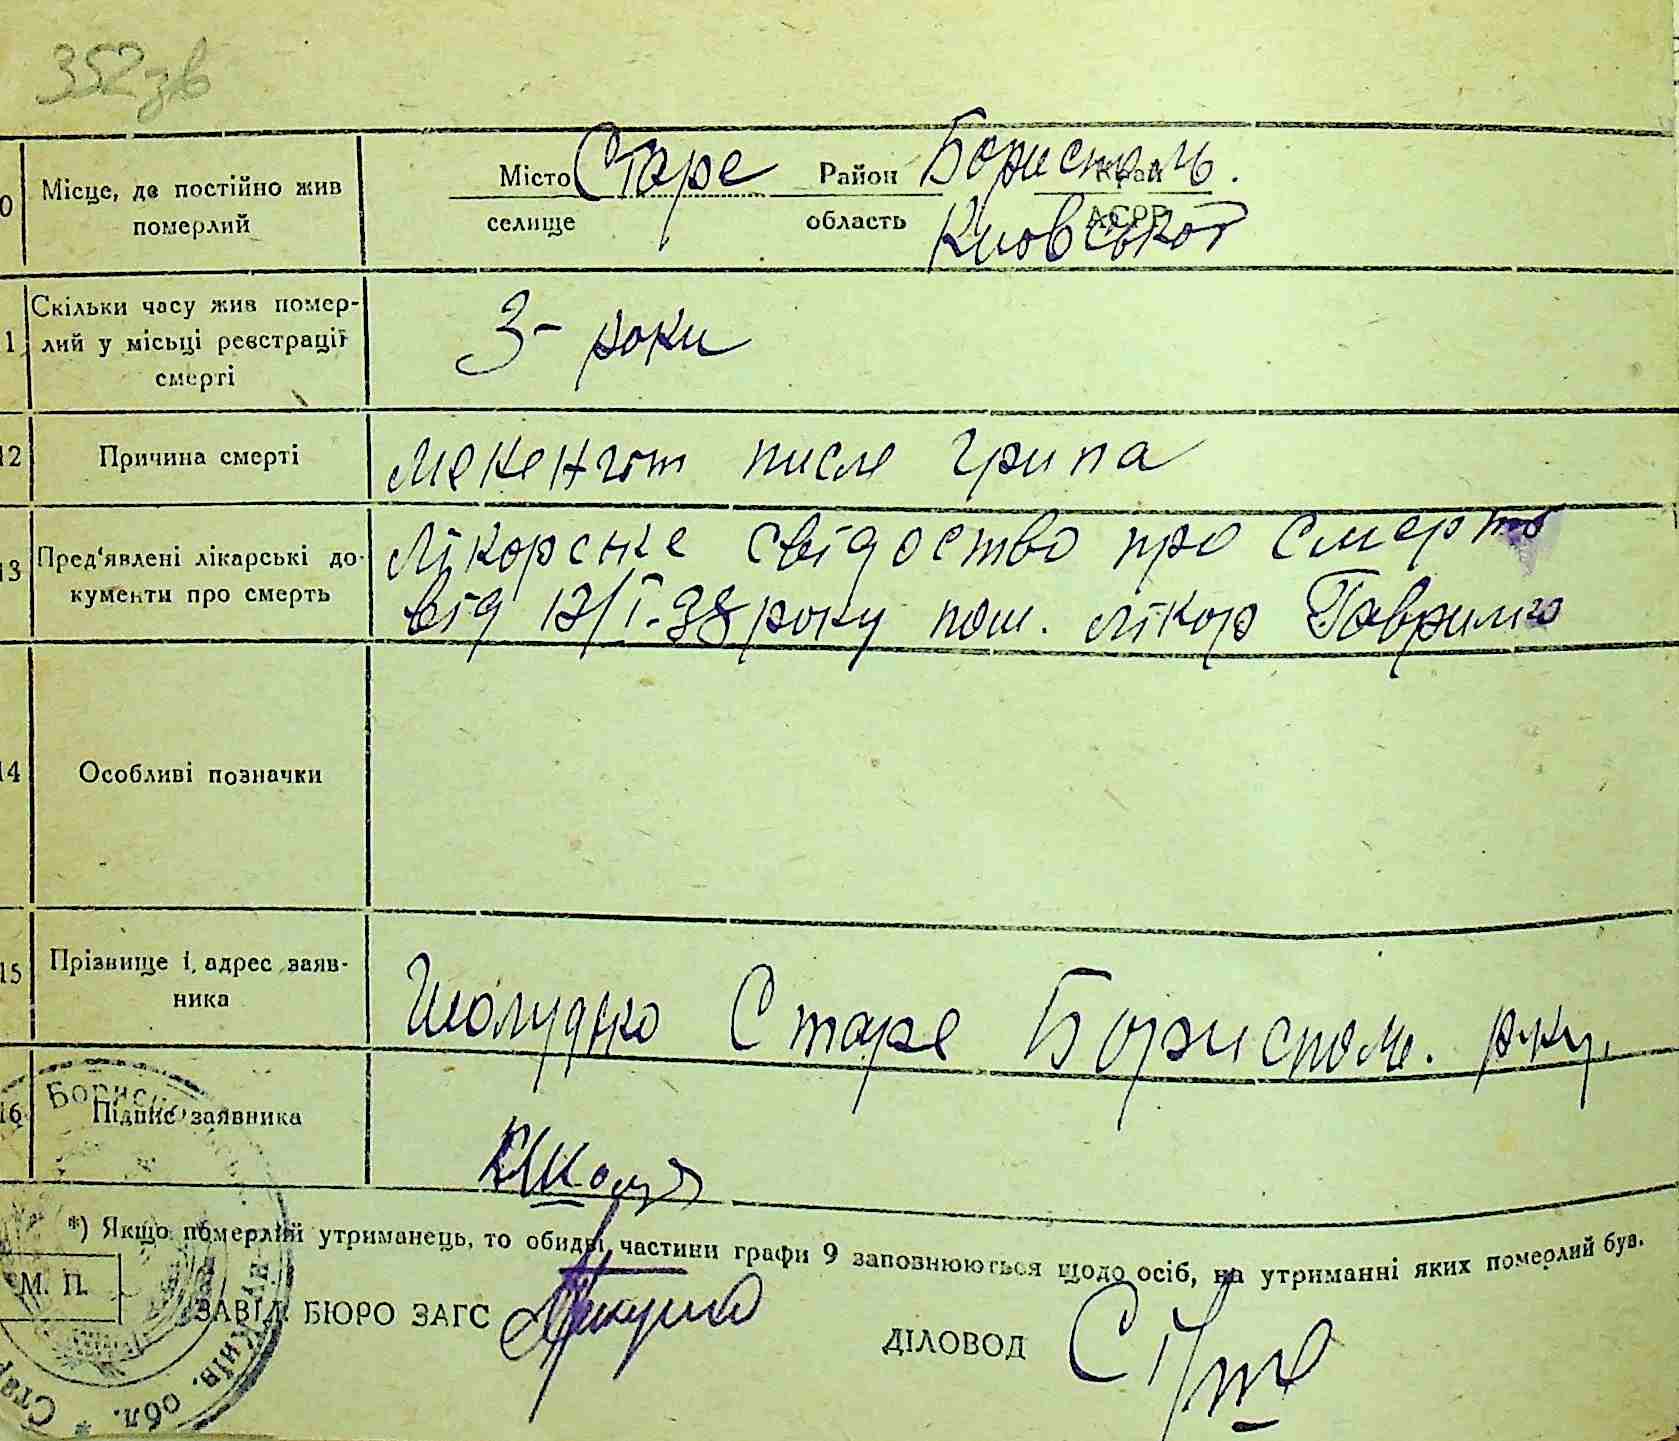 352 зв
0 Місце, де постійно жив померлий
Місто Старе Район Бориспіль. Край
селище область Києвської АСРР
1 Скільки часу жив помер-
лий у місьці реєстрації
смерті
3- роки
12 Причина смерті
менентіт писле грипа
13 Пред'явлені лікарські до-
кументи про смерть
Лікорське свідоство про смерть
від 12/I-38 року пош. лікор Гаврилко
14 Особливі позначки
15 Прізвище і адрес заяв-
ника
Шолудько Старе Бориспол. р-ку.
16 Підпис заявника
*) Якщо померлий утриманець, то обидві частини графи 9 заповнюються щодо осіб, на утриманні яких померлий був.
М. П.
ЗАВІД. БЮРО ЗАГС
ДІЛОВОД
Київ. обл. * Стар